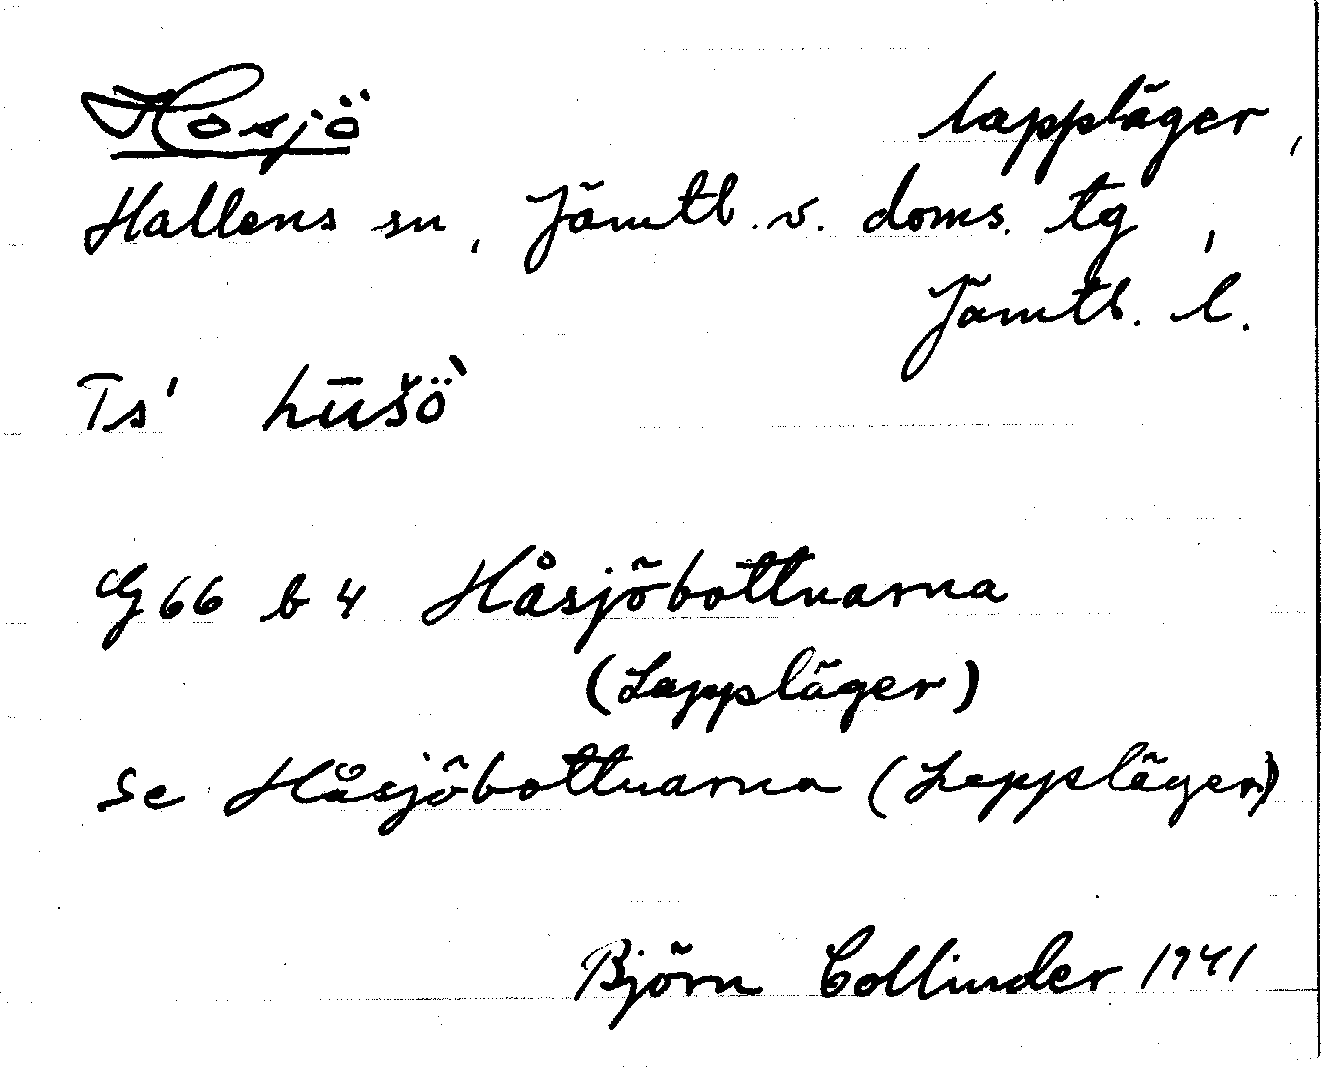 Hosjö lappläger,
Hallens sn, Jämtl. v. doms. tg,
Jämtl. l.
Ts' hūšö̀
G 66 b 4 Håsjöbottnarna
(Lappläger)
Se Håsjöbottnarna (Lappläger)
Björn Collinder 1941